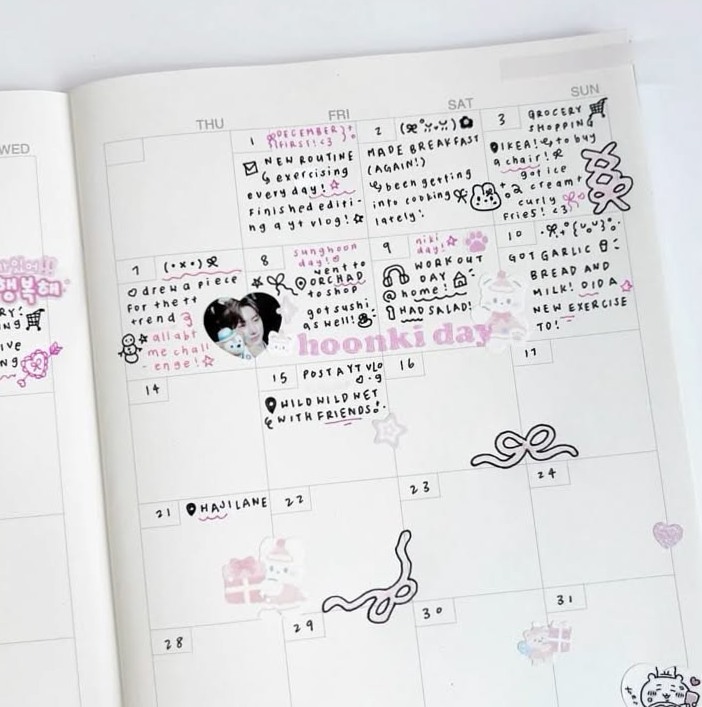 WED
THU
FRI
SAT
SUN
1
DECEMBER
FIRST! <3
NEW ROUTINE
exercising
every day!
Finished editi-
ng a yt vlog!
2
MADE BREAKFAST
(AGAIN!)
been getting
into cooking
lately!
3
GROCERY
SHOPPING
IKEA! to buy
a chair!
got ice
cream +
curly
fries! <3
7
drew a piece
for the tt
trend
all abt
me chall
-enge!
8
sunghoon
day!
went to
ORCHAD
to shop
got sushi
as well!
9
niki
day!
WORKOUT
DAY
@ home!
HAD SALAD!
10
GOT GARLIC
BREAD AND
MILK! DID A
NEW EXERCISE
TO!
행복해
NG
IVE
hoonki day
14
15
POST A YT VLO
-g
WILD WILD WET
WITH FRIENDS!
16
17
21
HAJI LANE
22
23
24
28
29
30
31